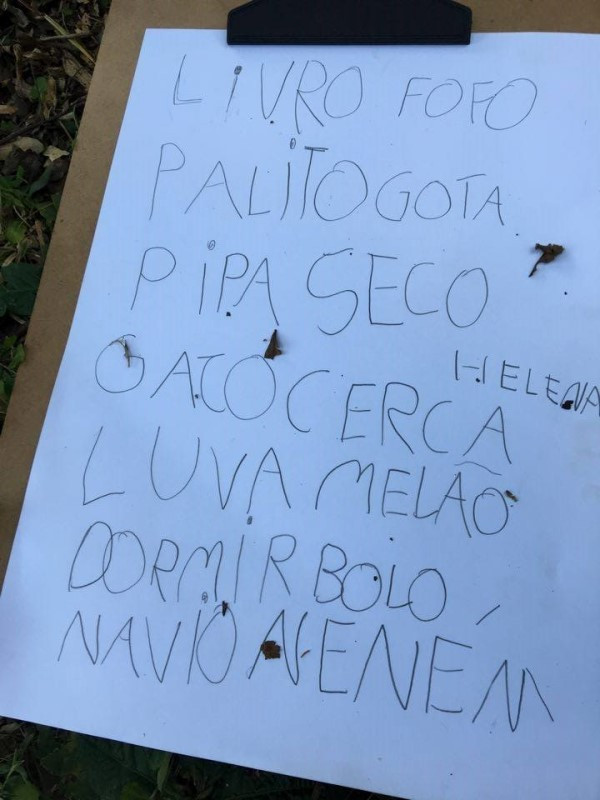 LiVRO FOFO
PALiTO GOTA
PiPA SECO
GATO CERCA
HELENA
LUVA MELÃO
DORMiR BOLO
NAViO NENÉM